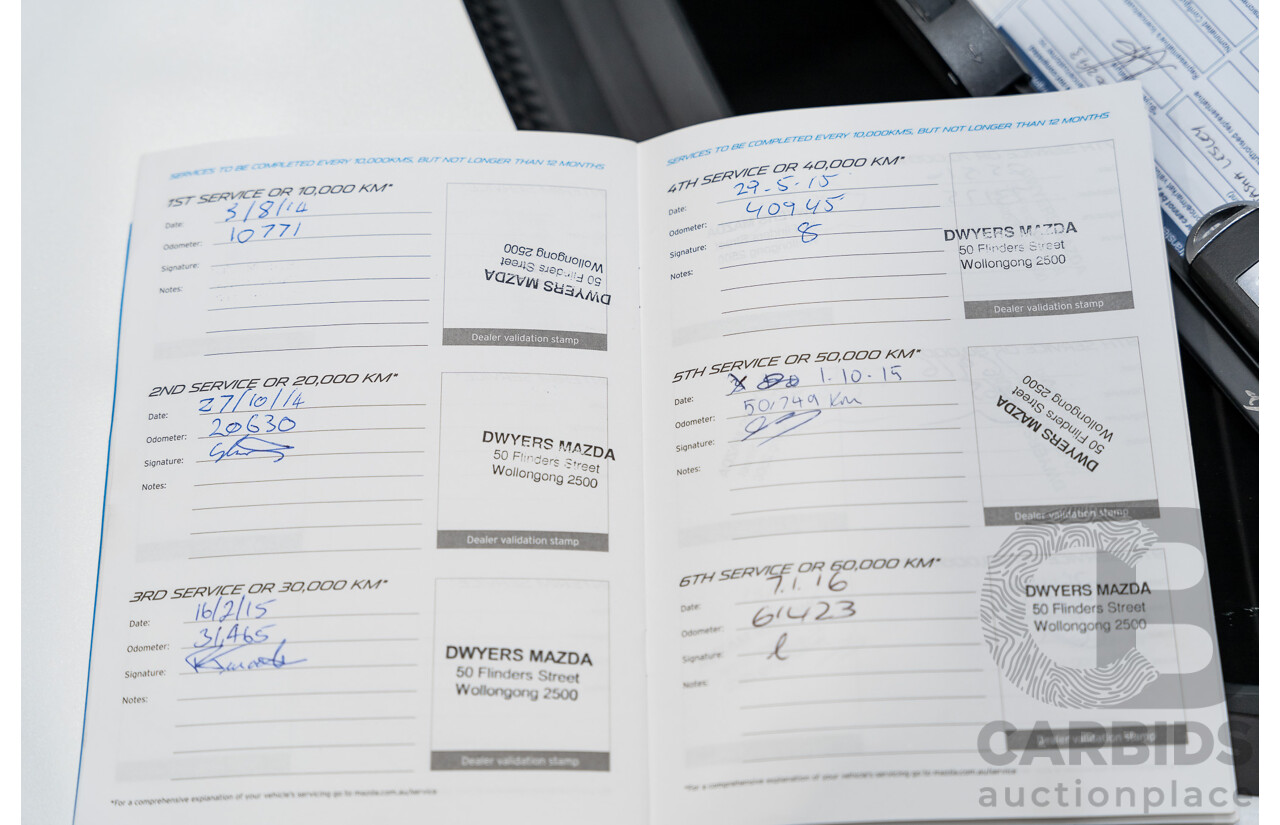 SERVICES TO BE COMPLETED EVERY 10,000KMS, BUT NOT LONGER THAN 12 MONTHS
1ST SERVICE OR 10,000 KM*
Date: 3/8/14
Odometer: 10771
Signature:
Notes:
DWYERS MAZDA
50 Flinders Street
Wollongong 2500
Dealer validation stamp
2ND SERVICE OR 20,000 KM*
Date: 27/10/14
Odometer: 20630
Signature:
Notes:
DWYERS MAZDA
50 Flinders Street
Wollongong 2500
Dealer validation stamp
3RD SERVICE OR 30,000 KM*
Date: 16/2/15
Odometer: 31,465
Signature:
Notes:
DWYERS MAZDA
50 Flinders Street
Wollongong 2500
Dealer validation stamp
*For a comprehensive explanation of your vehicle's servicing go to mazda.com.au/service
SERVICES TO BE COMPLETED EVERY 10,000KMS, BUT NOT LONGER THAN 12 MONTHS
4TH SERVICE OR 40,000 KM*
Date: 29.5.15
Odometer: 40945
Signature:
Notes:
DWYERS MAZDA
50 Flinders Street
Wollongong 2500
Dealer validation stamp
5TH SERVICE OR 50,000 KM*
Date: 1.10.15
Odometer: 50,749 Km
Signature:
Notes:
DWYERS MAZDA
50 Flinders Street
Wollongong 2500
Dealer validation stamp
6TH SERVICE OR 60,000 KM*
Date: 7.1.16
Odometer: 61423
Signature:
Notes:
DWYERS MAZDA
50 Flinders Street
Wollongong 2500
Dealer validation stamp
*For a comprehensive explanation of your vehicle's servicing go to mazda.com.au/service
LESLEY
CARBIDS
auctionplace